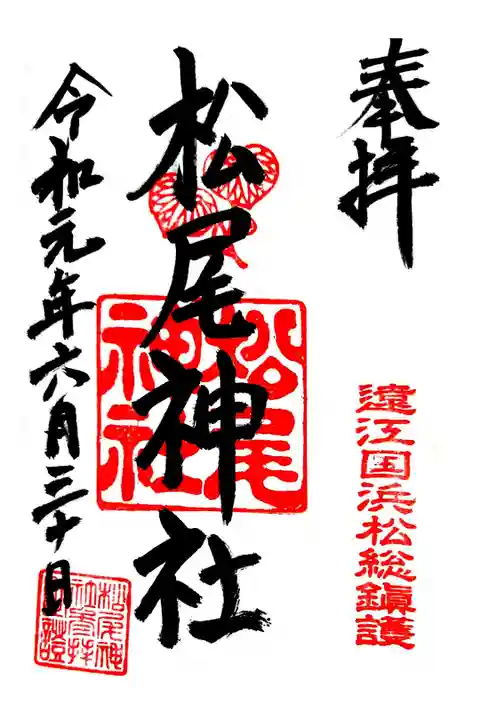 奉拝
遠江国浜松総鎮護
松尾神社
松尾神社
令和元年六月三十日
松尾神社参拝証